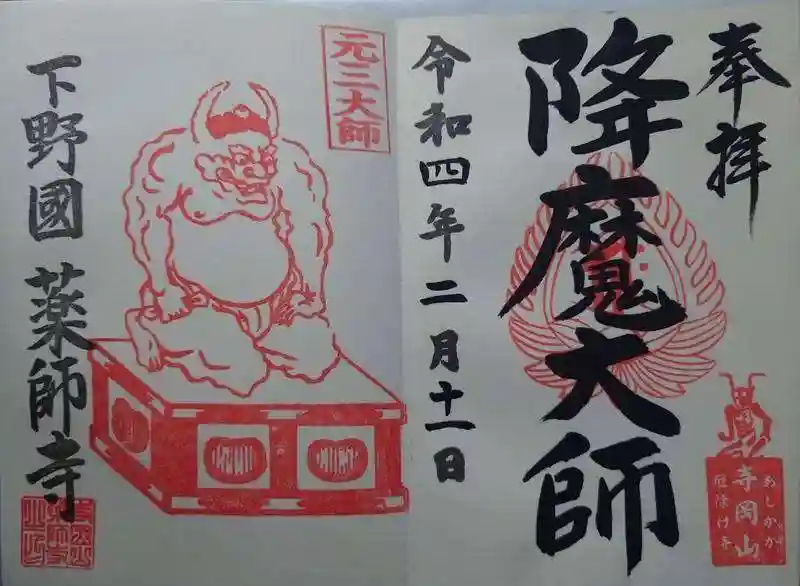 奉拝
降魔大師
令和四年二月十一日
元三大師
下野國 薬師寺
あしかが
寺岡山
厄除け寺